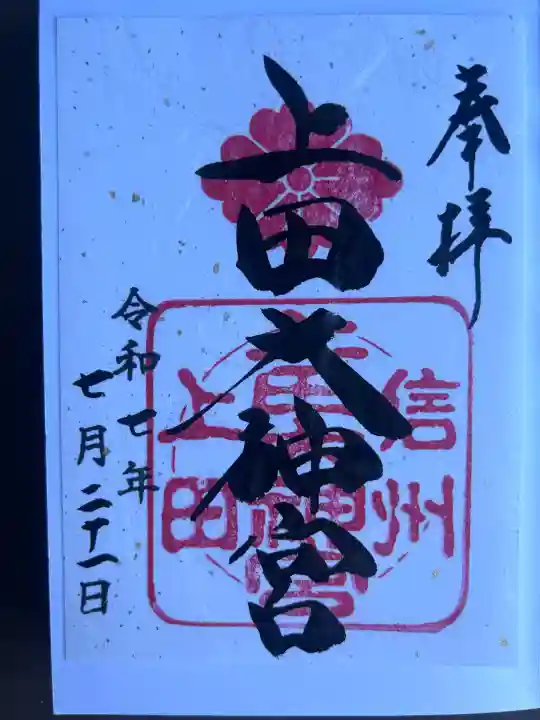 奉拝
上田大神宮
信州
上田
令和七年
七月二十一日